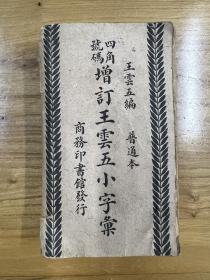 王雲五編　普通本
四角號碼
增訂王雲五小字彙
商務印書館發行